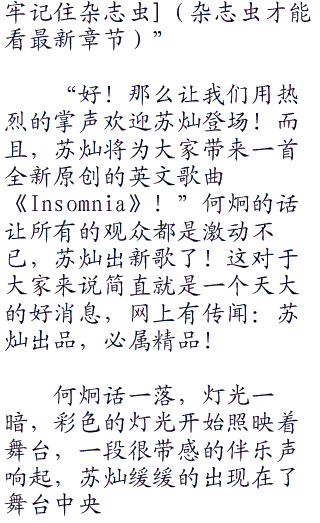 牢记住杂志虫](杂志虫才能
看最新章节)”
“好！那么让我们用热
烈的掌声欢迎苏灿登场！而
且，苏灿将为大家带来一首
全新原创的英文歌曲
《Insomnia》！”何炯的话
让所有的观众都是激动不
已，苏灿出新歌了！这对于
大家来说简直就是一个天大
的好消息，网上有传闻：苏
灿出品，必属精品！
何炯话一落，灯光一
暗，彩色的灯光开始照映着
舞台，一段很带感的伴乐声
响起，苏灿缓缓的出现在了
舞台中央